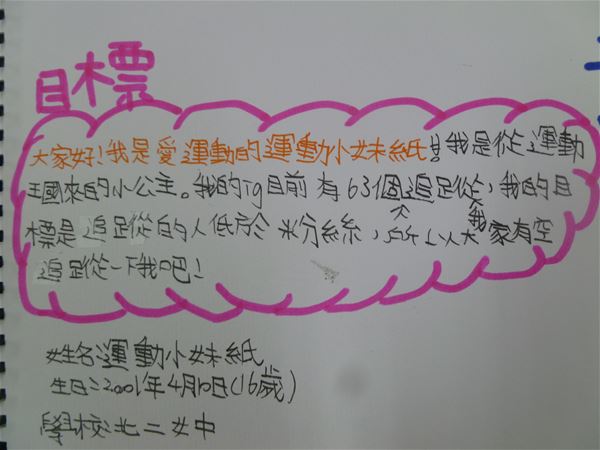 目標
大家好!我是愛運動的運動小妹紙!!我是從運動
王國來的小公主。我的ig目前有63個人追蹤我,我的目
標是追蹤的人低於粉絲,所以大家有空
追蹤一下我吧!
姓名:運動小妹紙
生日:2001年4月10日(16歲)
學校:北二女中